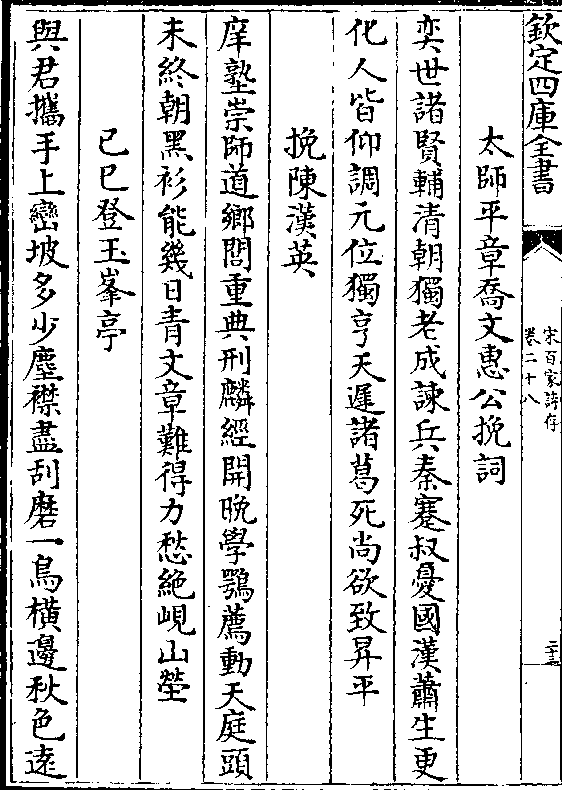 欽定四庫全書
宋百家詩存
卷二十八
太師平章喬文惠公挽詞
奕世諸賢輔清朝獨老成諫兵秦蹇叔憂國漢蕭生更
化人皆仰調元位獨亨天遲諸葛死尚欲致昇平
挽陳漢英
庠塾崇師道鄉閭重典刑麟經開晚學鶚薦動天庭頭
未終朝黑衫能幾日青文章難得力愁絶峴山塋
己巳登玉峯亭
與君攜手上巒坡多少塵襟盡刮磨一鳥横邊秋色遠